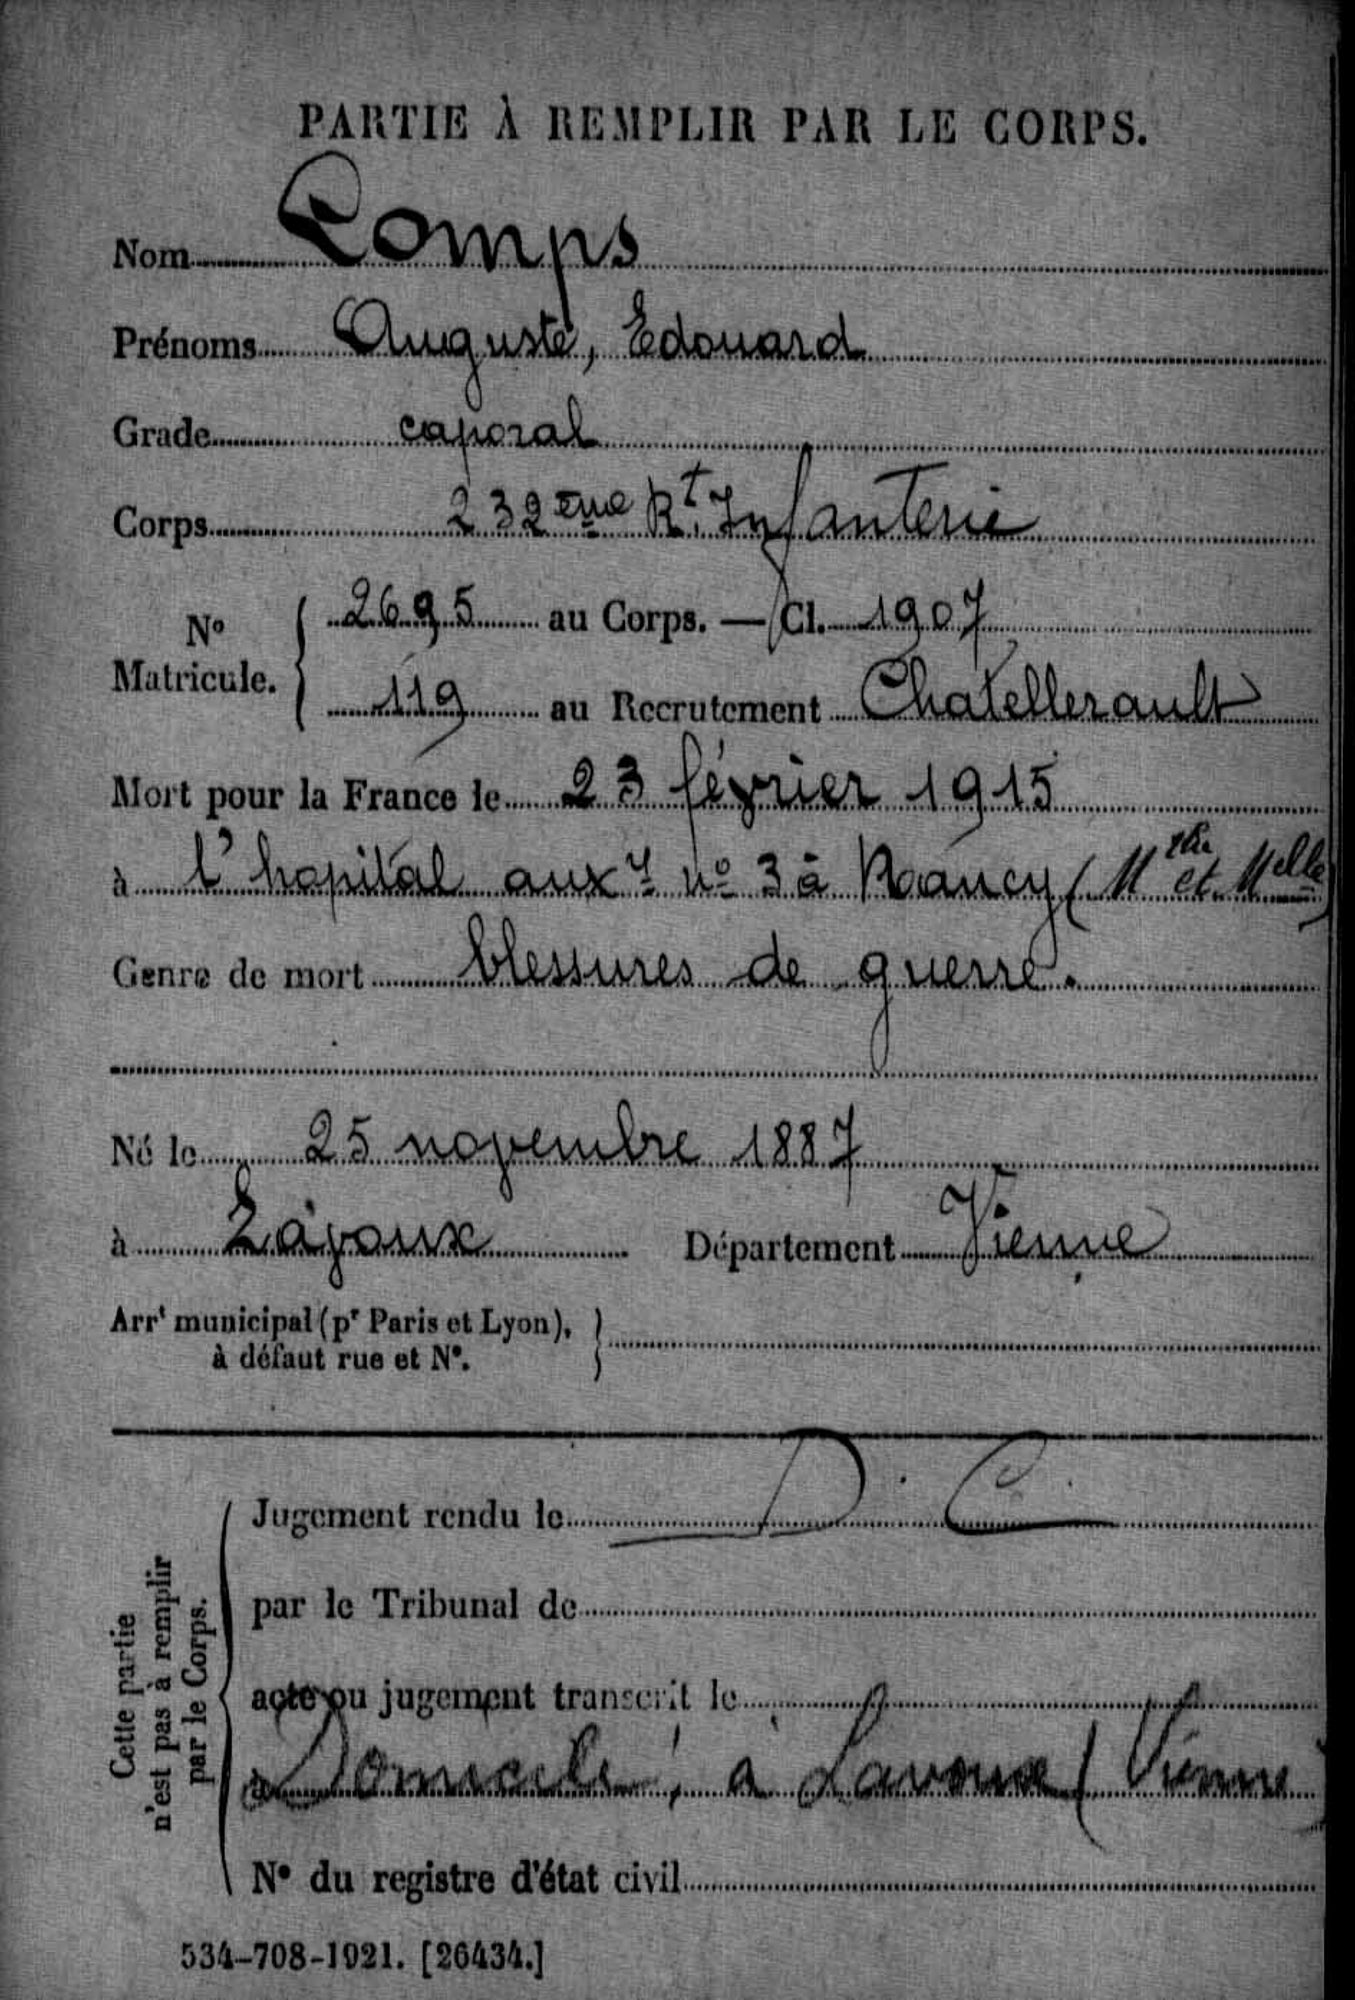 PARTIE À REMPLIR PAR LE CORPS.
Nom Comps
Prénoms Auguste, Edouard
Grade caporal
Corps 232ème Rt. Infanterie
No Matricule. { 2695 au Corps. — Cl. 1907
119 au Recrutement Chatellerault
Mort pour la France le 23 février 1915
à l'hopital auxre no 3 à Nancy (Mthe et Melle)
Genre de mort blessures de guerre.
Né le 25 novembre 1887
à Lavoux Département Vienne
Arrt municipal (pr Paris et Lyon), à défaut rue et No. }
Cette partie n'est pas à remplir par le Corps.
Jugement rendu le D. C.
par le Tribunal de
acte ou jugement transcrit le
à Domicilié à Lavoux (Vienne)
No du registre d'état civil
534-708-1921. [26434.]